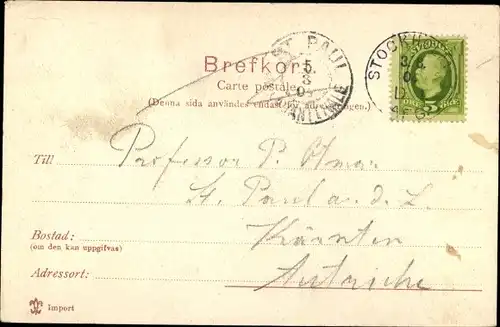 Brefkort
Carte postale.
(Denna sida användes endast för adresseringen.)
ST. PAUL
5
3
STOCKHOLM
SVERIGE
5 ÖRE
Till Professor P.
St. Paul a. d. L.
Bostad: Kärnten
(om den kan uppgifvas)
Adressort: Autriche
Import